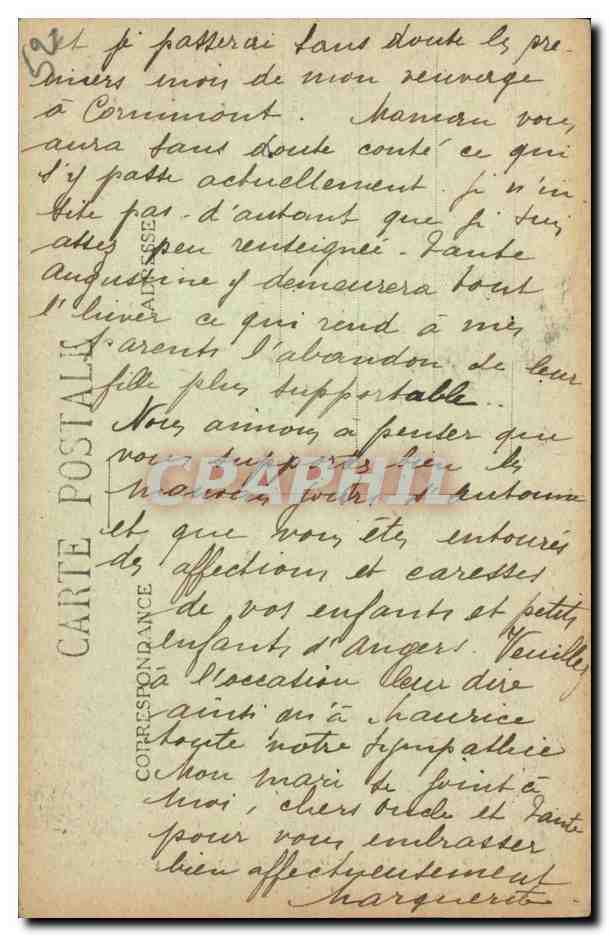 52
et je passerai sans doute les pre-
miers mois de mon veuvage
à Cornimont. Maman vous
aura sans doute conté ce qui
s'y passe actuellement. Je n'in
siste pas - d'autant que je suis
assez peu renseignée - Tante
Augustine y demeurera tout
l'hiver ce qui rend à mes
Parents l'abandon de leur
fille plus supportable..
Nous aimons à penser que
vous supportez bien les
mauvais jours d'automne
et que vous êtes entourés
des affections et caresses
de vos enfants et petits
enfants d'Angers. Veuillez
à l'occasion leur dire
ainsi qu'à Maurice
toute notre sympathie
Mon mari se joint à
moi, chers Oncle et Tante
pour vous embrasser
bien affectueusement
Marguerite.
CARTE POSTALE
CORRESPONDANCE
ADRESSE
CPAPHIL